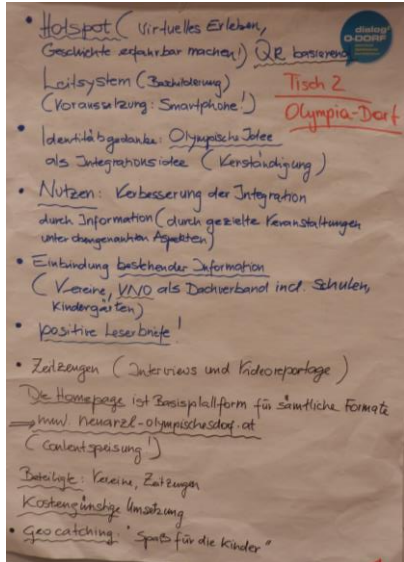 • Hotspot (virtuelles Erleben,
Geschichte erfahrbar machen!) QR basierend
Leitsystem (Beschilderung)
(Voraussetzung: Smartphone!)
dialog
O-DORF
Tisch 2
Olympia-Dorf
• Identitätsgedanke: Olympische Idee
als Integrationsidee (Verständigung)
• Nutzen: Verbesserung der Integration
durch Information (durch gezielte Veranstaltungen
unter obengenannten Aspekten)
• Einbindung bestehender Information
(Vereine, VNO als Dachverband incl. Schulen,
Kindergärten)
• positive Leserbriefe!
• Zeitzeugen (Interviews und Videoreportage)
Die Homepage ist Basisplattform für sämtliche Formate
→ www.neuarzl-olympischesdorf.at
(Contentspeisung!)
Beteiligte: Vereine, Zeitzeugen
Kostengünstige Umsetzung
• Geocatching: "Spaß für die Kinder"